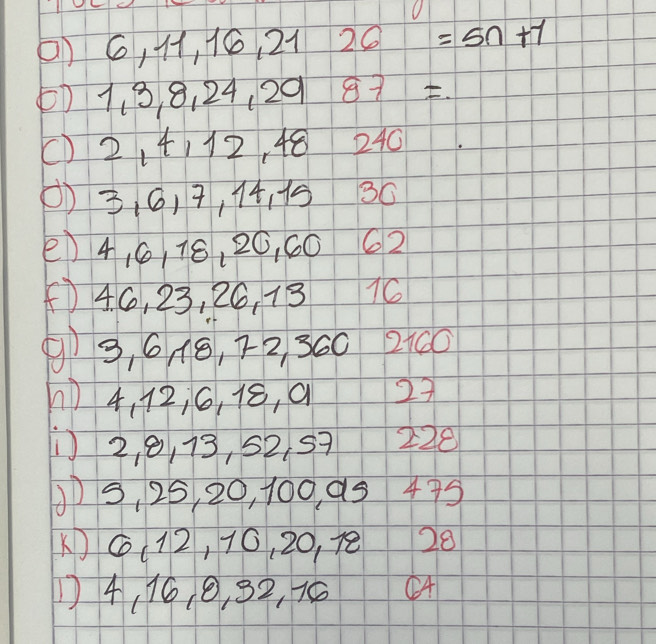 a) 6, 11, 16, 21 26 = 5n + 1
b) 1, 3, 8, 24, 29 87 =.
c) 2, 4, 12, 48 240 .
d) 3, 6, 7, 14, 15 30
e) 4, 6, 18, 20, 60 62
f) 46, 23, 26, 13 16
g) 3, 6, 18, 72, 360 2160
h) 4, 12, 6, 18, 9 27
i) 2, 8, 13, 52, 57 228
j) 5, 25, 20, 100, 95 475
k) 6, 12, 10, 20, 18 28
l) 4, 16, 8, 32, 16 64